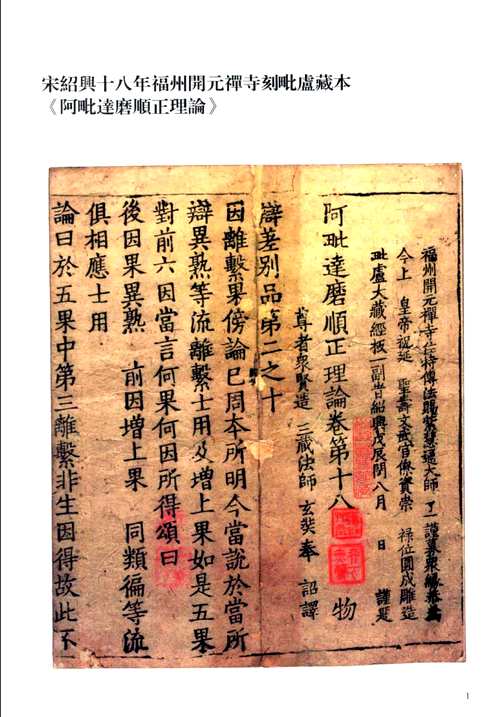 宋紹興十八年福州開元禪寺刻毗盧藏本
《阿毗達磨順正理論》
福州開元禪寺住持傳法賜紫慧通大師 了一 謹募眾緣恭為
今上 皇帝祝延 聖壽文武官僚資崇 祿位圓成雕造
毗盧大藏經板一副旹紹興戊辰閏八月 日 謹題
阿毗達磨順正理論卷第十八 物
尊者眾賢造 三藏法師 玄奘奉 詔譯
辯差別品第二之十
因離繫果傍論已周本所明今當說於當所
辯異熟等流離繫士用及增上果如是五果
對前六因當言何果何因所得頌曰
後因果異熟 前因增上果 同類徧等流
俱相應士用
論曰於五果中第三離繫非生因得故此不
1